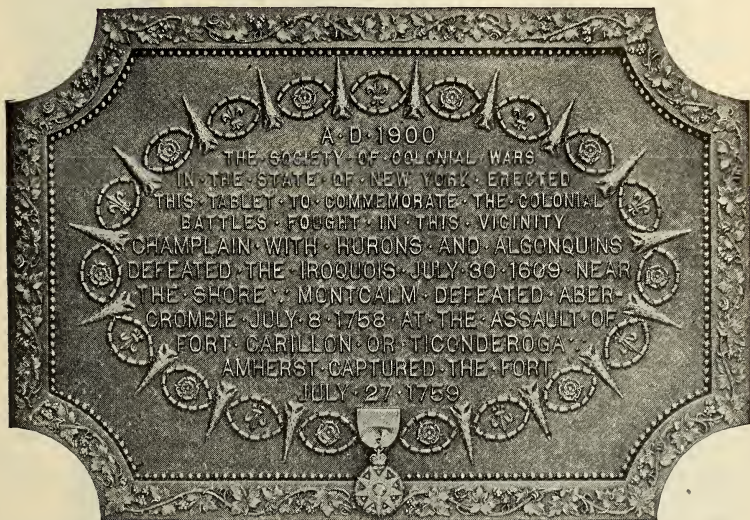 A·D·1900
THE·SOCIETY·OF·COLONIAL·WARS
IN·THE·STATE·OF·NEW YORK·ERECTED
THIS·TABLET·TO·COMMEMORATE·THE·COLONIAL
BATTLES·FOUGHT·IN·THIS·VICINITY
CHAMPLAIN·WITH·HURONS·AND·ALGONQUINS
DEFEATED·THE·IROQUOIS·JULY·30·1609·NEAR
THE·SHORE∵MONTCALM·DEFEATED·ABER-
CROMBIE·JULY·8·1758·AT·THE·ASSAULT·OF
FORT·CARILLON·OR·TICONDEROGA∵
AMHERST·CAPTURED·THE·FORT
JULY·27·1759